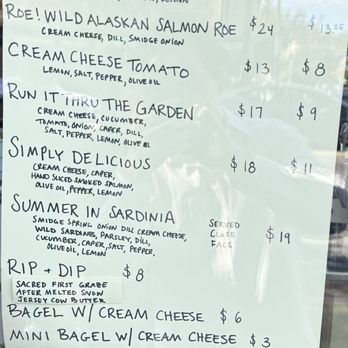 ROE! WILD ALASKAN SALMON ROE $24 $13.25
CREAM CHEESE, DILL, SMIDGE ONION
CREAM CHEESE TOMATO $13 $8
LEMON, SALT, PEPPER, OLIVE OIL
RUN IT THRU THE GARDEN $17 $9
CREAM CHEESE, CUCUMBER,
TOMATO, ONION, CAPER, DILL,
SALT, PEPPER, LEMON, OLIVE OIL
SIMPLY DELICIOUS $18 $11
CREAM CHEESE, CAPER,
HAND SLICED SMOKED SALMON,
OLIVE OIL, PEPPER, LEMON
SUMMER IN SARDINIA SERVED CLOSE FACE $19
SMIDGE SPRING ONION DILL CREAM CHEESE,
WILD SARDINES, PARSLEY, DILL,
CUCUMBER, CAPER, SALT, PEPPER,
OLIVE OIL, LEMON
RIP + DIP $8
SACRED FIRST GRAZE
AFTER MELTED SNOW
JERSEY COW BUTTER
BAGEL W/ CREAM CHEESE $6
MINI BAGEL W/ CREAM CHEESE $3